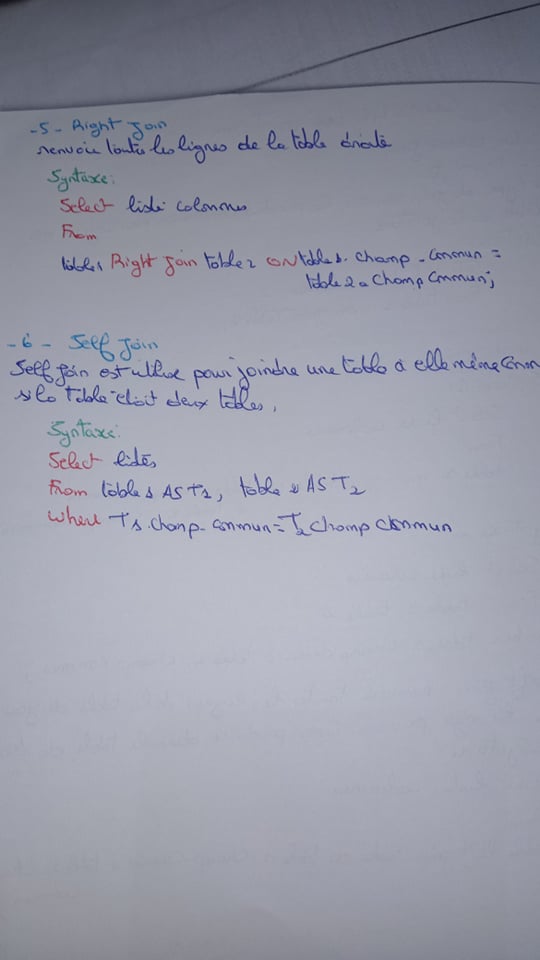 -5- Right Join
renvoie toutes les lignes de la table droite
Syntaxe:
Select liste colonnes
From
table1 Right Join table2 ON table1.champ-commun =
table2.champ commun;
-6- Self Join
Self join est utilise pour joindre une table à elle même comm
si la table était deux tables,
Syntaxe:
Select listes
From table1 AS T1, table AS T2
Where T1.champ-commun=T2 champ commun